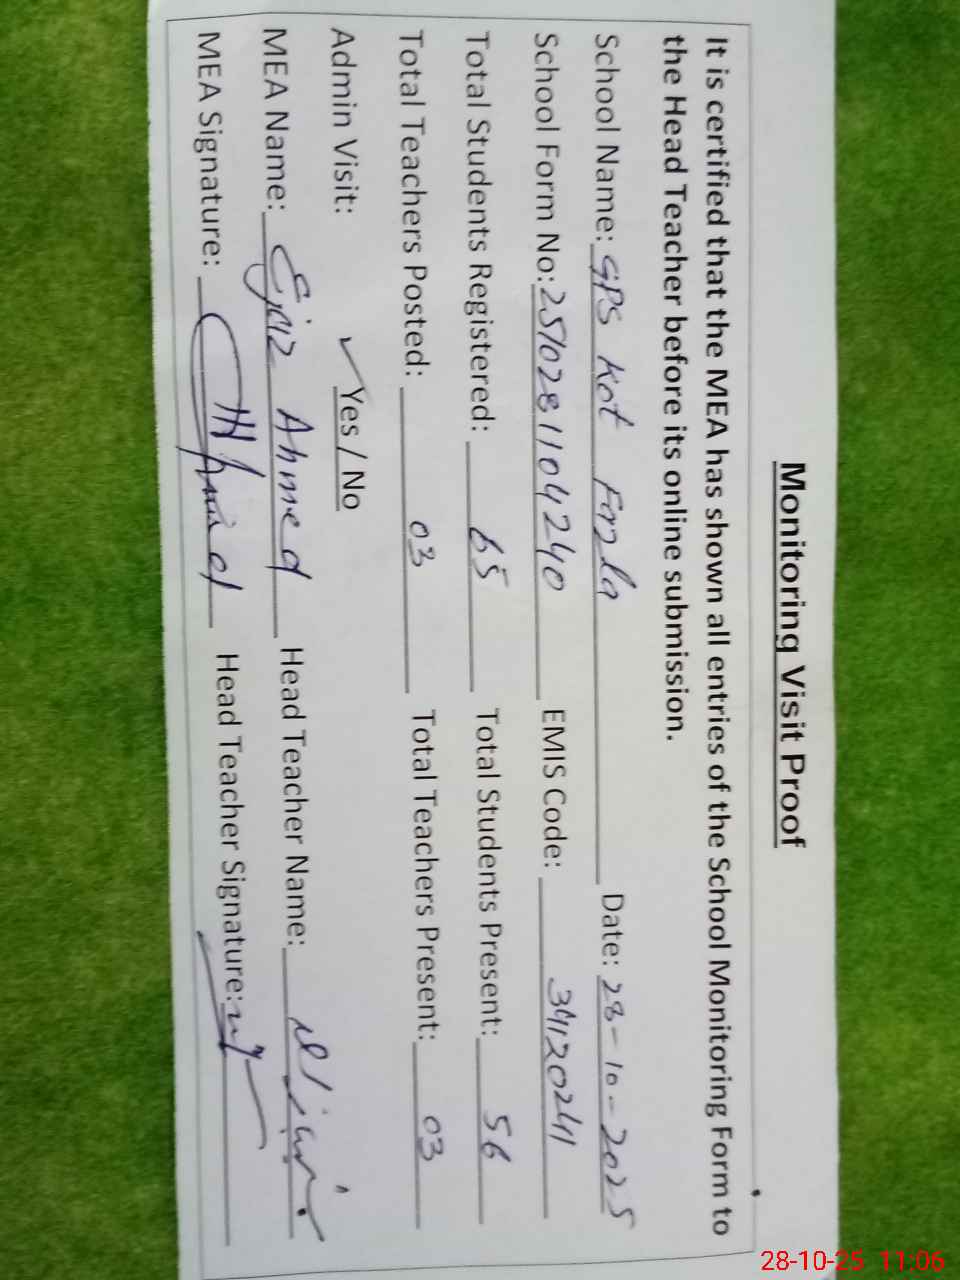 Monitoring Visit Proof
It is certified that the MEA has shown all entries of the School Monitoring Form to
the Head Teacher before its online submission.
School Name: GPS Kot Fazla Date: 28-10-2025
School Form No: 2510281104240 EMIS Code: 34120241
Total Students Registered: 65 Total Students Present: 56
Total Teachers Posted: 03 Total Teachers Present: 03
Admin Visit: ✓ Yes / No
MEA Name: Ejaz Ahmed Head Teacher Name:
MEA Signature: Head Teacher Signature:
28-10-25 11:06